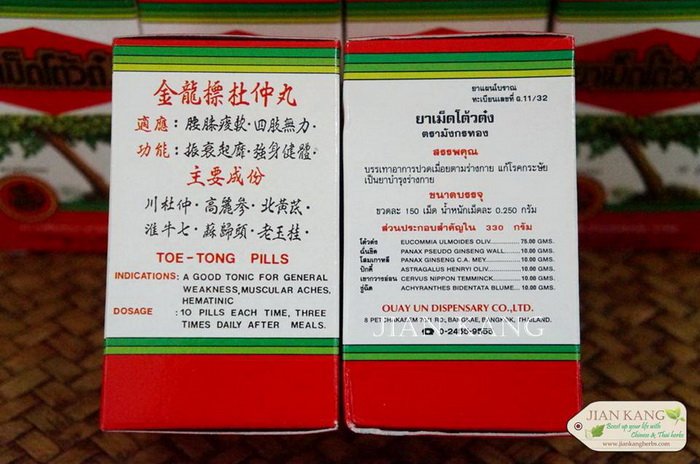 金龍標杜仲丸
適應：腰膝痠軟·四肢無力·
功能：振衰起靡·強身健體·
主要成份
川杜仲·高麗參·北黃芪·
淮牛七·蘇歸頭·老玉桂
TOE-TONG PILLS
INDICATIONS: A GOOD TONIC FOR GENERAL
WEAKNESS,MUSCULAR ACHES.
HEMATINIC
DOSAGE : 10 PILLS EACH TIME, THREE
TIMES DAILY AFTER MEALS.
ยาแผนโบราณ
ทะเบียนเลขที่ G.11/32
ยาเม็ดโต้วต๋ง
ตรามังกรทอง
สรรพคุณ
บรรเทาอาการปวดเมื่อยตามร่างกาย แก้โรคกระษัย
เป็นยาบำรุงร่างกาย
ขนาดบรรจุ
ขวดละ 150 เม็ด น้ำหนักเม็ดละ 0.250 กรัม
ส่วนประกอบสำคัญใน 330 กรัม
โต้วต๋ง EUCOMMIA ULMOIDES OLIV. 75.00 GMS.
ฉั่นชิด PANAX PSEUDO GINSENG WALL. 10.00 GMS.
โสมเกาหลี PANAX GINSENG C.A. MEY. 10.00 GMS.
ปักคี้ ASTRAGALUS HENRYI OLIV. 10.00 GMS.
เขากวางอ่อน CERVUS NIPPON TEMMINCK. 10.00 GMS.
ฮู่ฉิด ACHYRANTHES BIDENTATA BLUME. 10.00 GMS.
OUAY UN DISPENSARY CO.,LTD.
BANGKAE, BANGKOK, THAILAND.
JIAN KANG
JIAN KANG
Boost up your life with
Chinese & Thai herbs
www.jiankangherbs.com